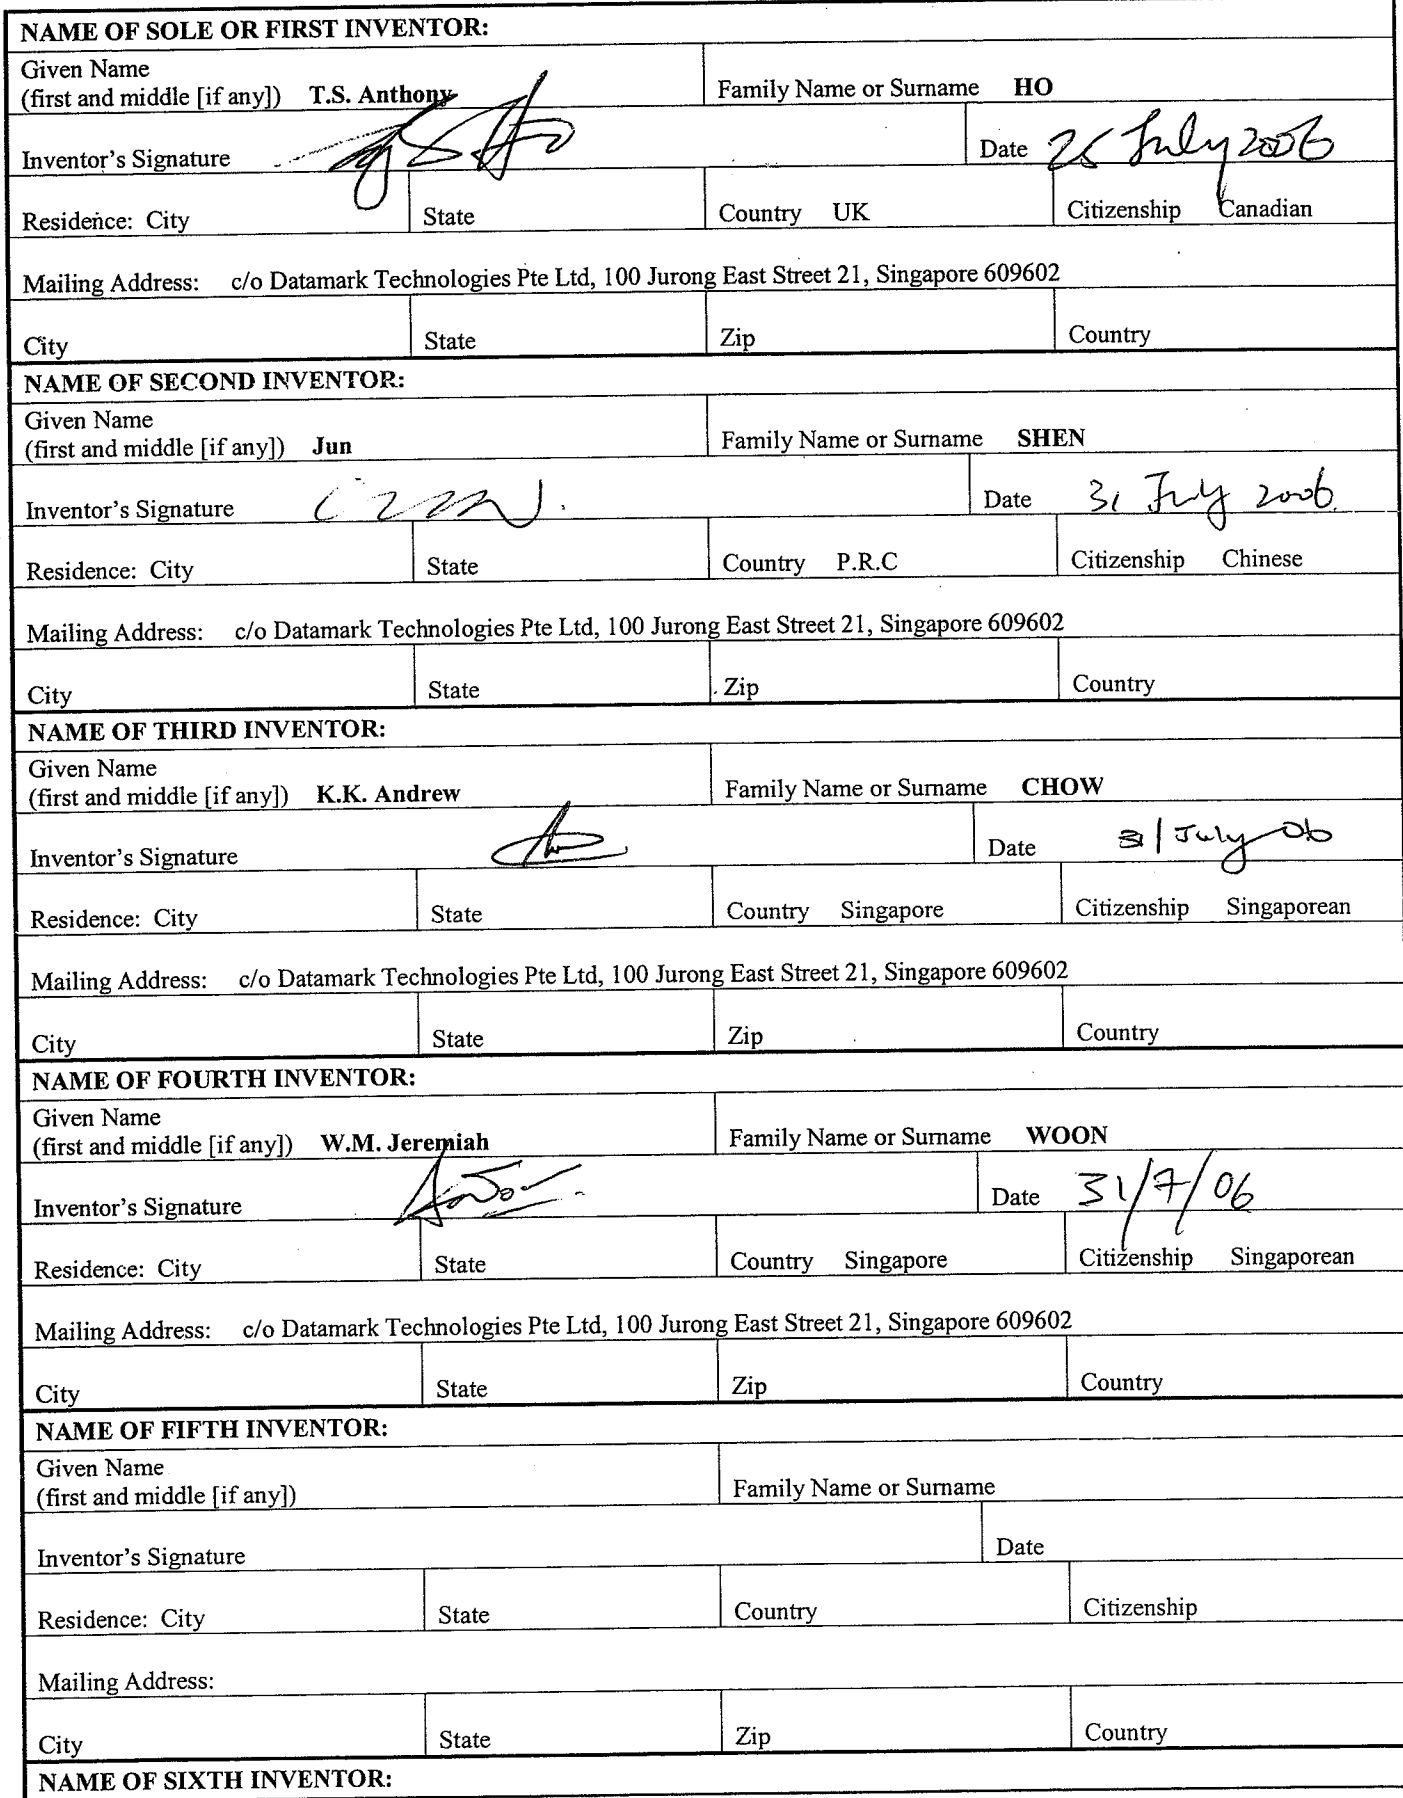 NAME OF SOLE OR FIRST INVENTOR:
Given Name
(first and middle [if any]) T.S. Anthony Family Name or Surname HO
Inventor's Signature Date July 2006
Residence: City State Country UK Citizenship Canadian
Mailing Address: c/o Datamark Technologies Pte Ltd, 100 Jurong East Street 21, Singapore 609602
City State Zip Country
NAME OF SECOND INVENTOR:
Given Name
(first and middle [if any]) Jun Family Name or Surname SHEN
Inventor's Signature Date 31 July 2006.
Residence: City State Country P.R.C Citizenship Chinese
Mailing Address: c/o Datamark Technologies Pte Ltd, 100 Jurong East Street 21, Singapore 609602
City State Zip Country
NAME OF THIRD INVENTOR:
Given Name
(first and middle [if any]) K.K. Andrew Family Name or Surname CHOW
Inventor's Signature Date 31 July 06
Residence: City State Country Singapore Citizenship Singaporean
Mailing Address: c/o Datamark Technologies Pte Ltd, 100 Jurong East Street 21, Singapore 609602
City State Zip Country
NAME OF FOURTH INVENTOR:
Given Name
(first and middle [if any]) W.M. Jeremiah Family Name or Surname WOON
Inventor's Signature Date 31/7/06
Residence: City State Country Singapore Citizenship Singaporean
Mailing Address: c/o Datamark Technologies Pte Ltd, 100 Jurong East Street 21, Singapore 609602
City State Zip Country
NAME OF FIFTH INVENTOR:
Given Name
(first and middle [if any]) Family Name or Surname
Inventor's Signature Date
Residence: City State Country Citizenship
Mailing Address:
City State Zip Country
NAME OF SIXTH INVENTOR: